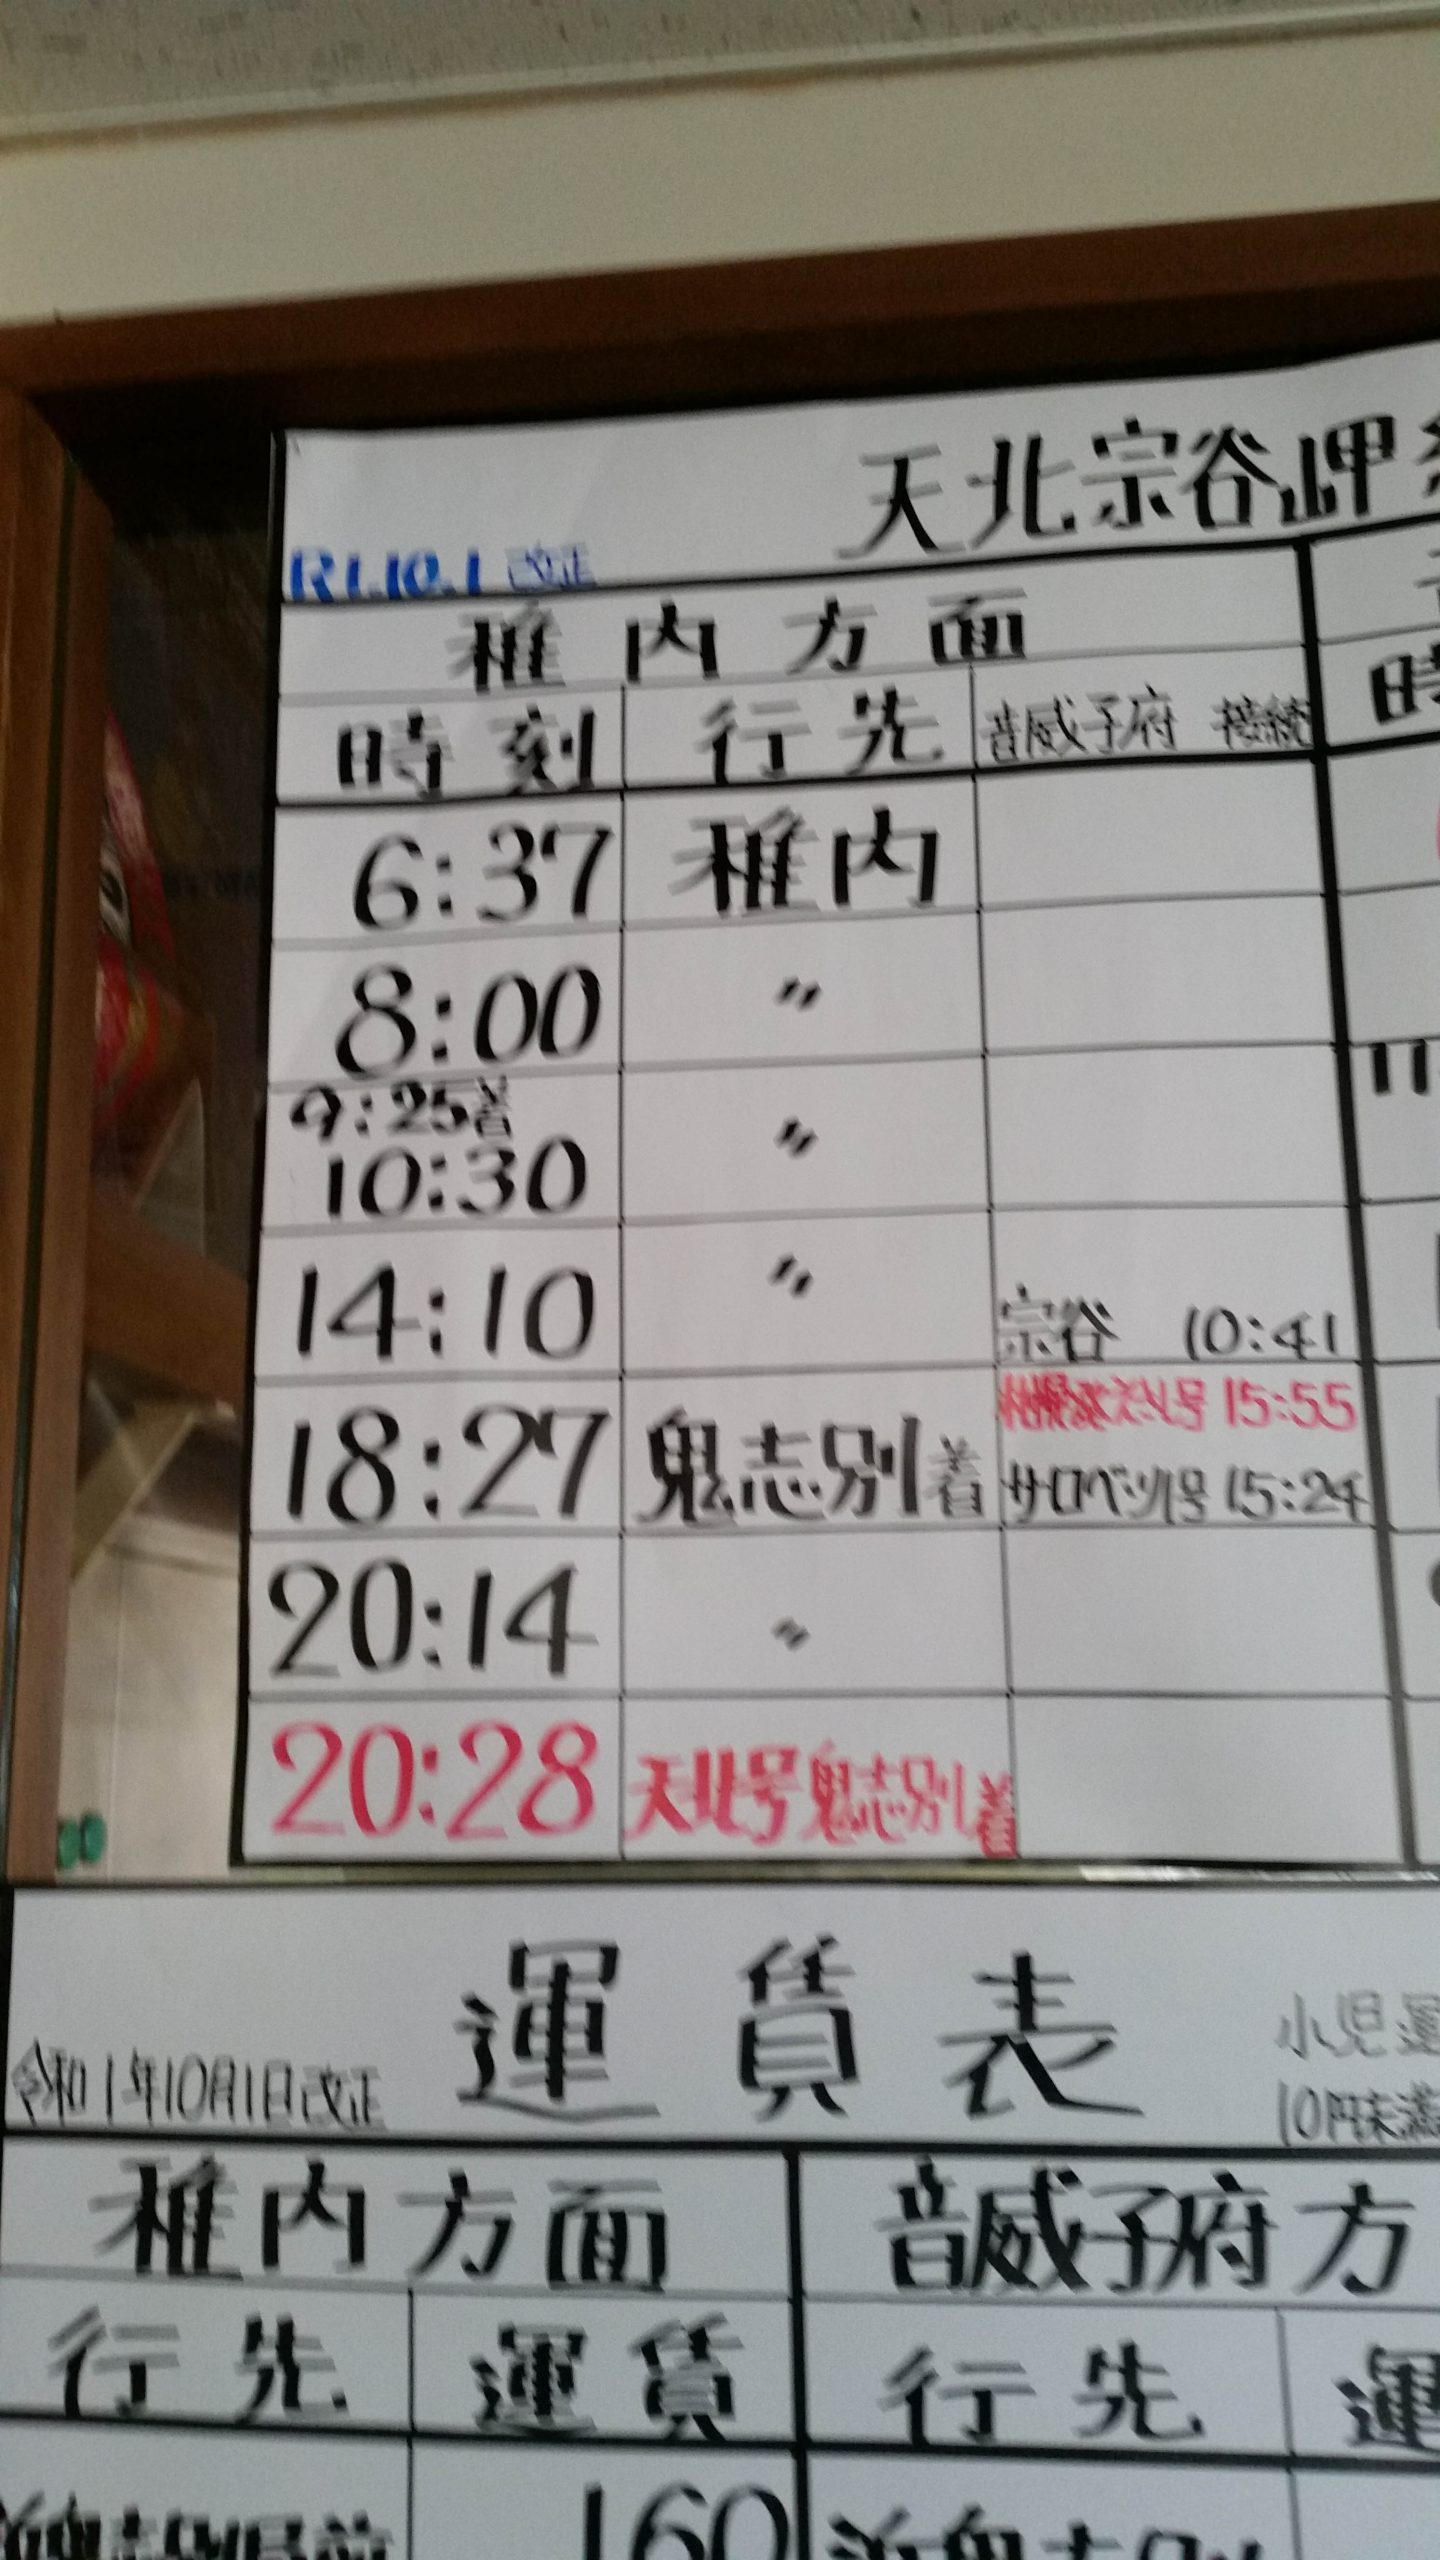 天北宗谷岬
R1.10.1 改正
稚内方面
時刻 行先 音威子府 接続
6:37 稚内
8:00 〃
9:25着
10:30 〃
14:10 〃 宗谷 10:41
15:55
18:27 鬼志別着 サロベツ号 15:24
20:14 〃
20:28 天北号鬼志別着
運賃表
令和1年10月1日改正
小児運
10円未満
稚内方面 音威子府方
行先 運賃 行先 運
160